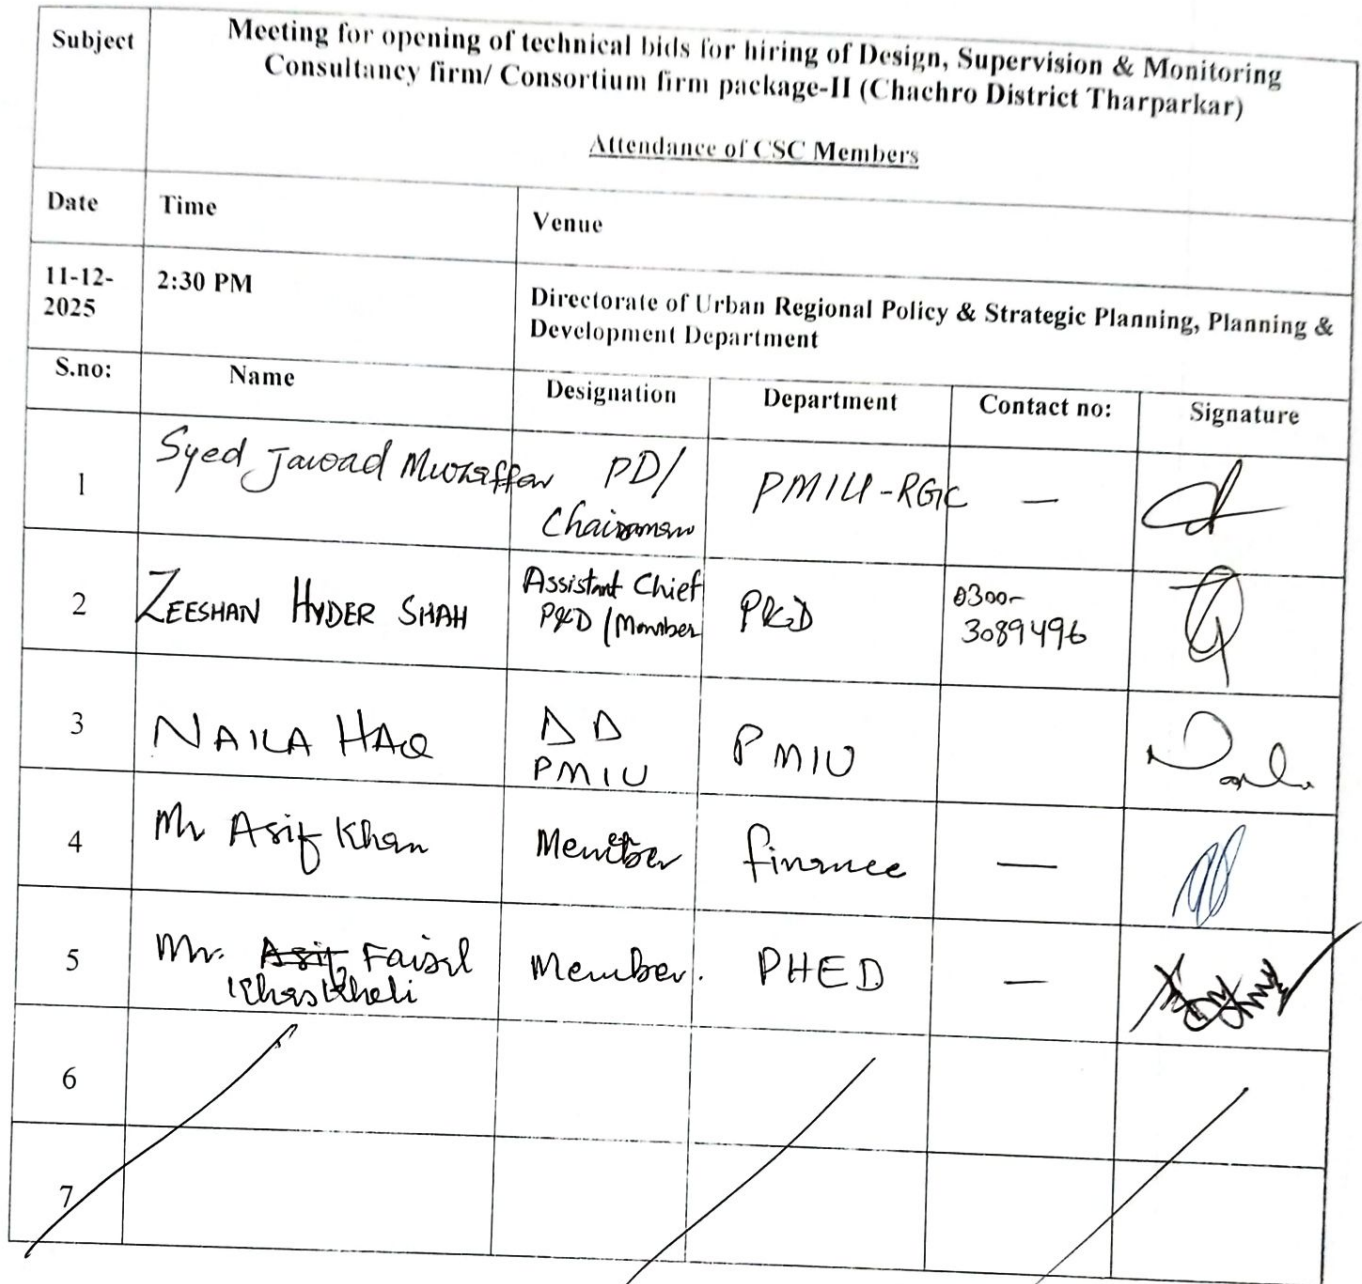 Subject
Meeting for opening of technical bids for hiring of Design, Supervision & Monitoring
Consultancy firm/ Consortium firm package-II (Chachro District Tharparkar)
Attendance of CSC Members
Date Time Venue
11-12-
2025
2:30 PM
Directorate of Urban Regional Policy & Strategic Planning, Planning &
Development Department
S.no: Name Designation Department Contact no: Signature
1 Syed Jawad Muzaffar PD/ PMIU-RGC —
Chairman
2 ZEESHAN HYDER SHAH Assistant Chief P&D 0300-
P&D/Member 3089496
3 NAILA HAQ DD PMIU
PMIU
4 Mr Asif Khan Member finance —
5 Mr. Asif Faisal Member. PHED —
Khaskheli
6
7